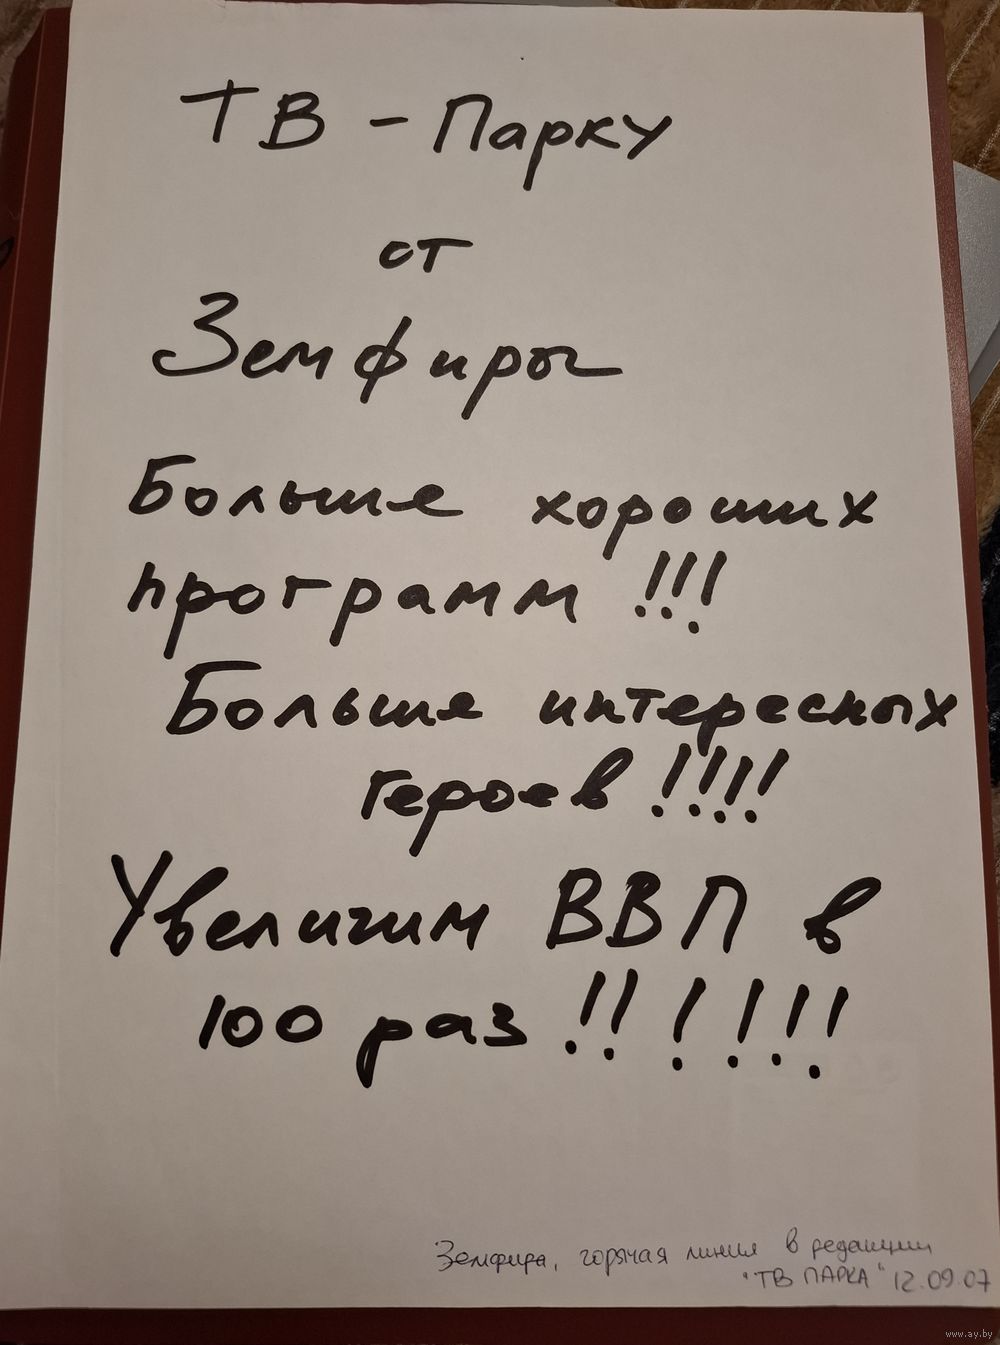 ТВ - Парку
от
Земфиры
Больше хороших
программ !!!
Больше интересных
героев !!!!
Увеличим ВВП в
100 раз !!!!!!
Земфира, горячая линия в редакции
"ТВ ПАРКА" 12.09.07
www.ay.by